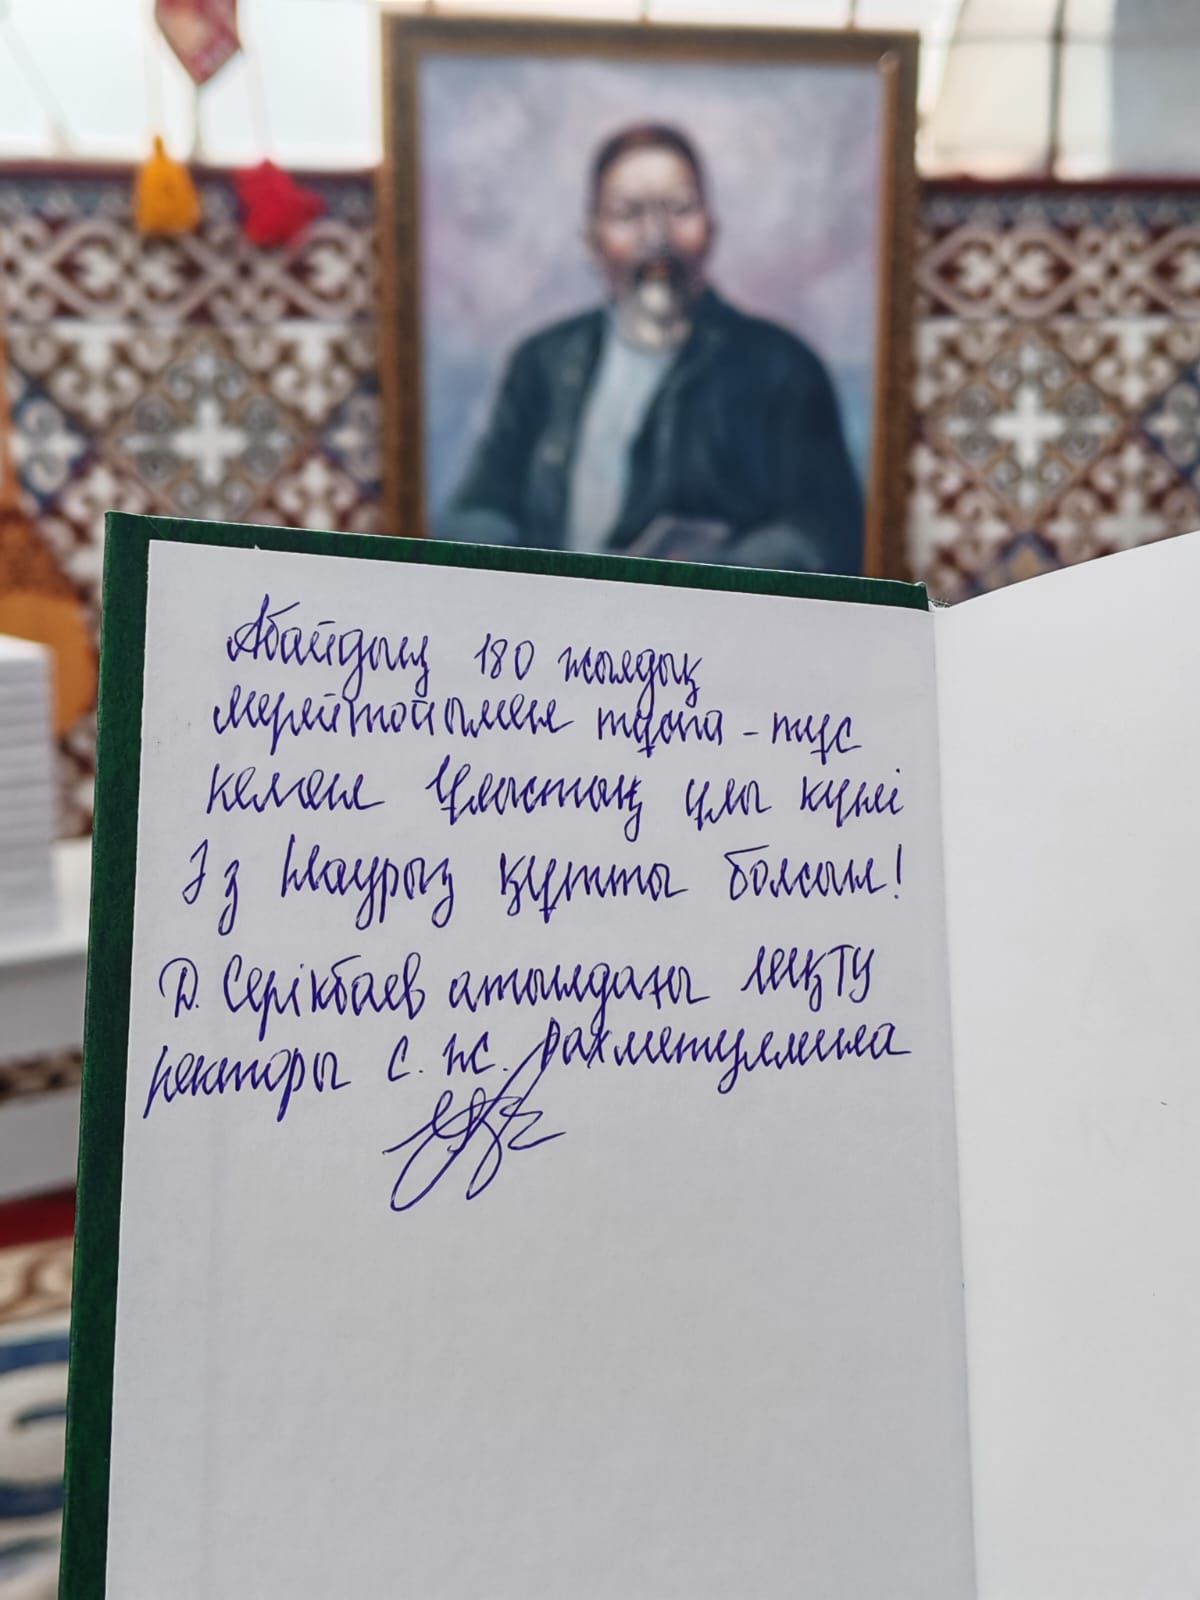 Абайдың 180 жылдық
мерейтойымен тұспа-тұс
келген Ұлыстың ұлы күні
Әз Наурыз құтты болсын!
Д. Серікбаев атындағы ШҚТУ
ректоры С. Ж. Рахметуллина